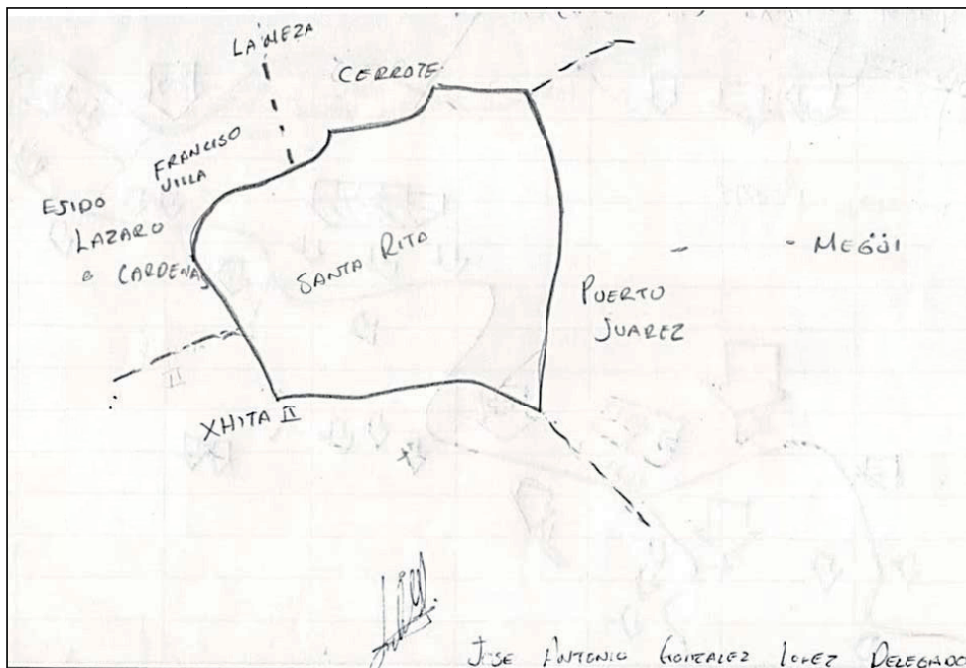 LA MEZA
CERROTE
FRANCISO
VILLA
EJIDO
LAZARO
CARDENAS
SANTA RITO
MEGÜI
PUERTO
JUAREZ
XHITA II
JOSE ANTONIO GONZALEZ LOPEZ DELEGADO